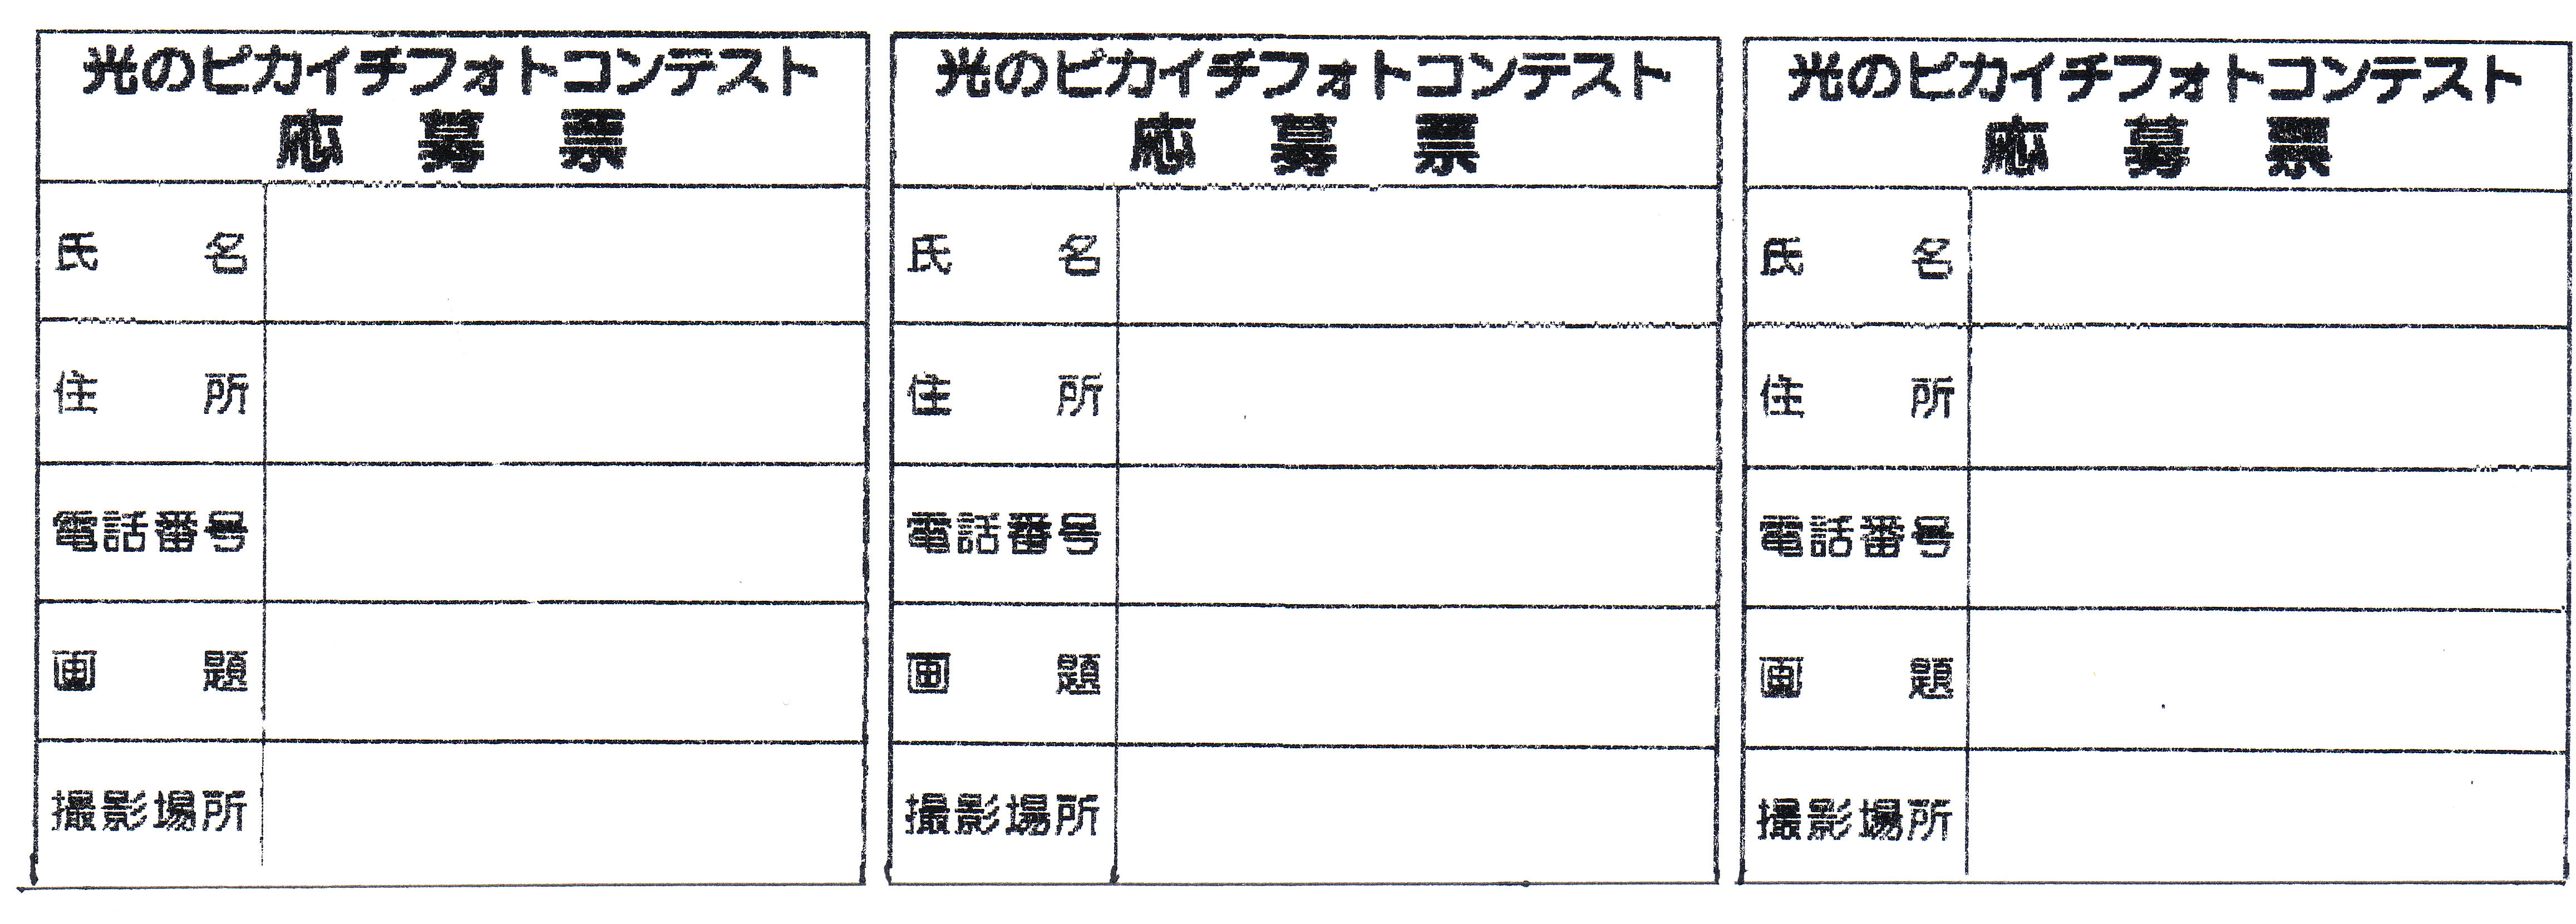 光のピカイチフォトコンテスト
応募票
氏名
住所
電話番号
画題
撮影場所
光のピカイチフォトコンテスト
応募票
氏名
住所
電話番号
画題
撮影場所
光のピカイチフォトコンテスト
応募票
氏名
住所
電話番号
画題
撮影場所